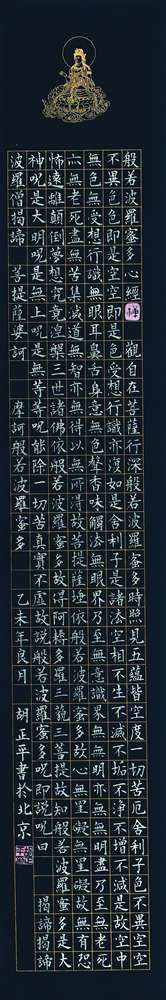 般若波羅蜜多心經 禪 觀自在菩薩行深般若波羅蜜多時照見五蘊皆空度一切苦厄舍利子色不異空空
不異色色即是空空即是色受想行識亦復如是舍利子是諸法空相不生不滅不垢不淨不增不減是故空中
無色無受想行識無眼耳鼻舌身意無色聲香味觸法無眼界乃至無意識界無無明亦無無明盡乃至無老死
亦無老死盡無苦集滅道無智亦無得以無所得故菩提薩埵依般若波羅蜜多故心無罣礙無罣礙故無有恐
怖遠離顛倒夢想究竟涅槃三世諸佛依般若波羅蜜多故得阿耨多羅三藐三菩提故知般若波羅蜜多是大
神呪是大明呪是無上呪是無等等呪能除一切苦真實不虛故說般若波羅蜜多呪即說呪曰 揭諦揭諦
波羅僧揭諦 菩提薩婆訶 摩訶般若波羅蜜多 乙未年良月 胡正平書於北京